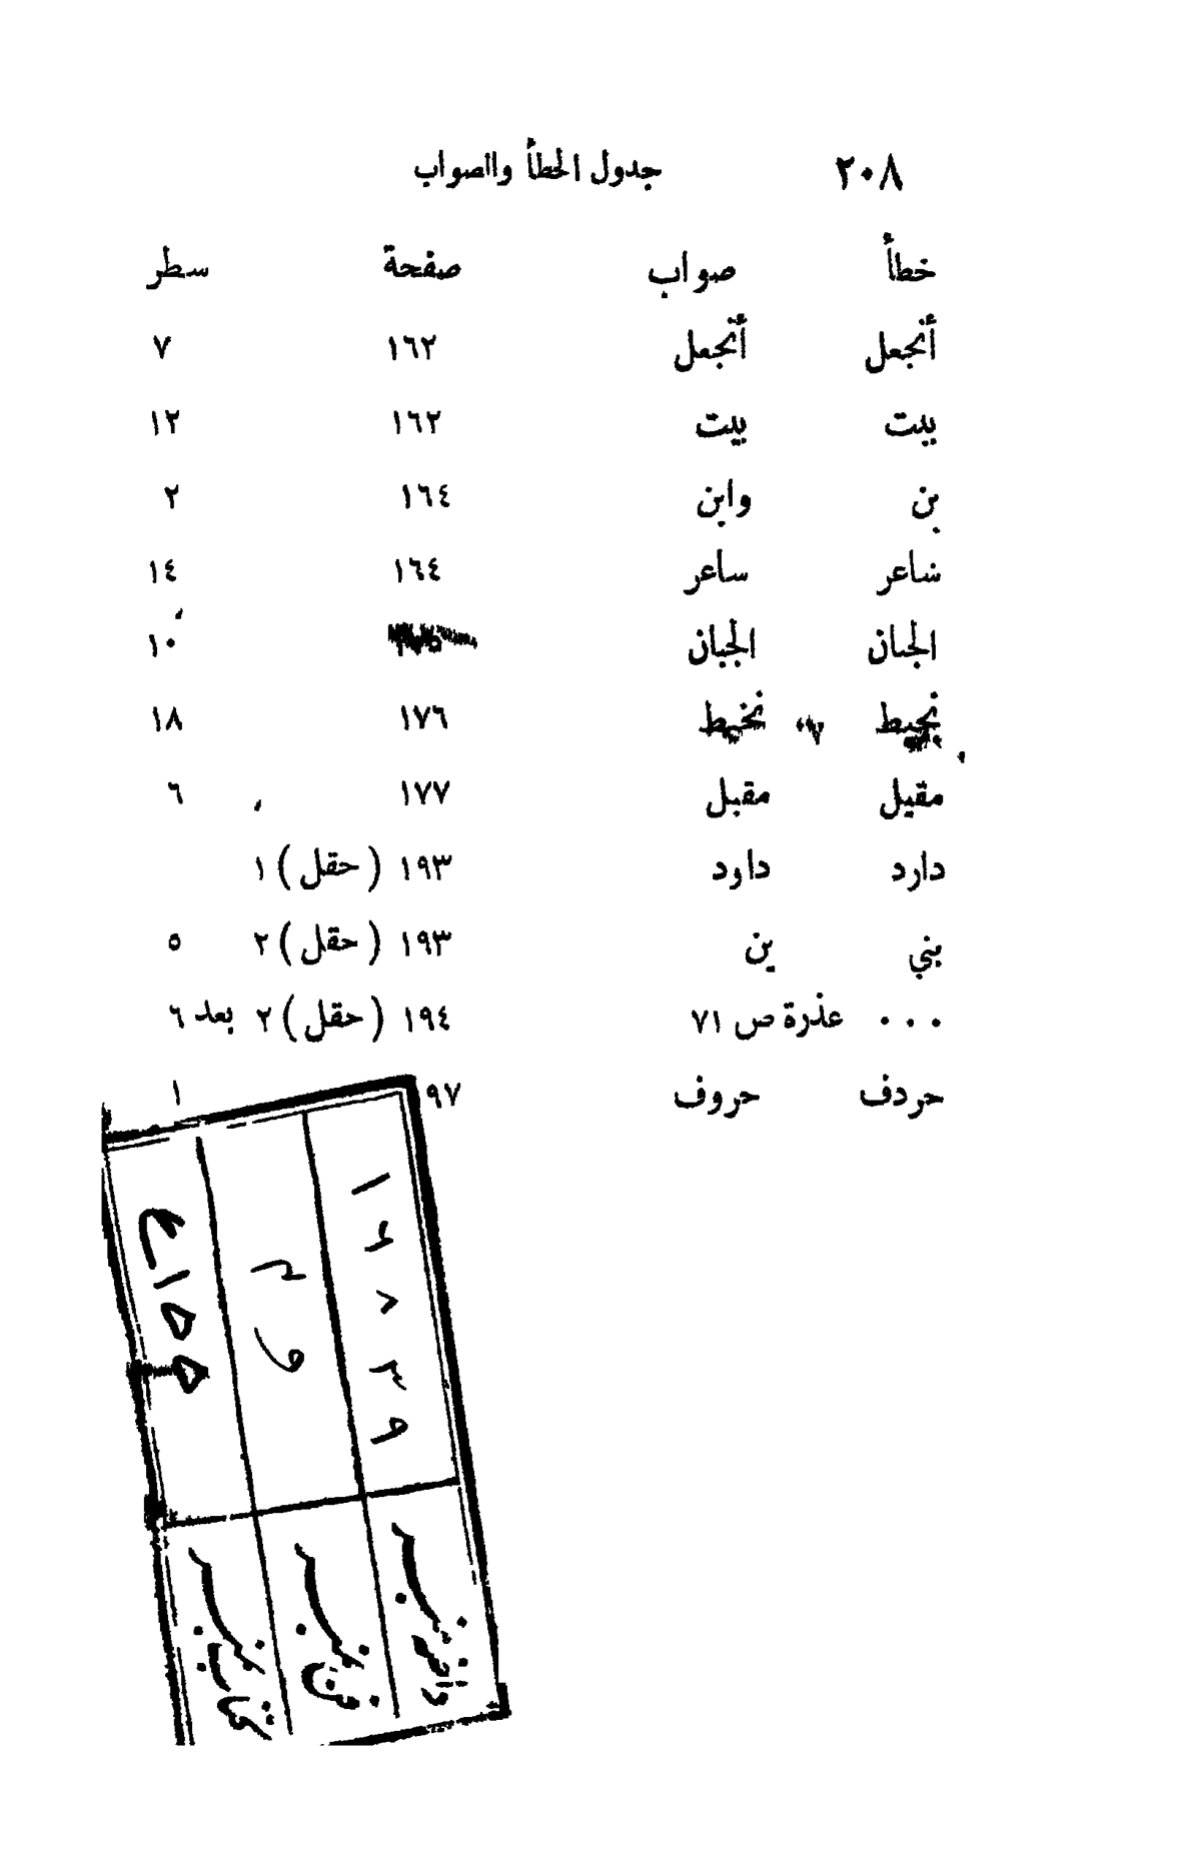 ٢٠٨ جدول الخطأ والصواب
خطأ صواب صفحة سطر
أنجعل أتجعل ١٦٢ ٧
بيت بيت ١٦٢ ١٢
بن وابن ١٦٤ ٢
شاعر ساعر ١٦٤ ١٤
الجبان الجبان ١٠
نحيط نخيط ١٧٦ ١٨
مقيل مقبل ١٧٧ ٦
دارد داود ١٩٣ (حقل) ١
بني بن ١٩٣ (حقل) ٢ ٥
... عذرة ص ٧١ ١٩٤ (حقل) ٢ بعد ٦
حردف حروف ٩٧ ١
داخله نمبر ١٢٨٣٩
فن نمبر
کتاب نمبر